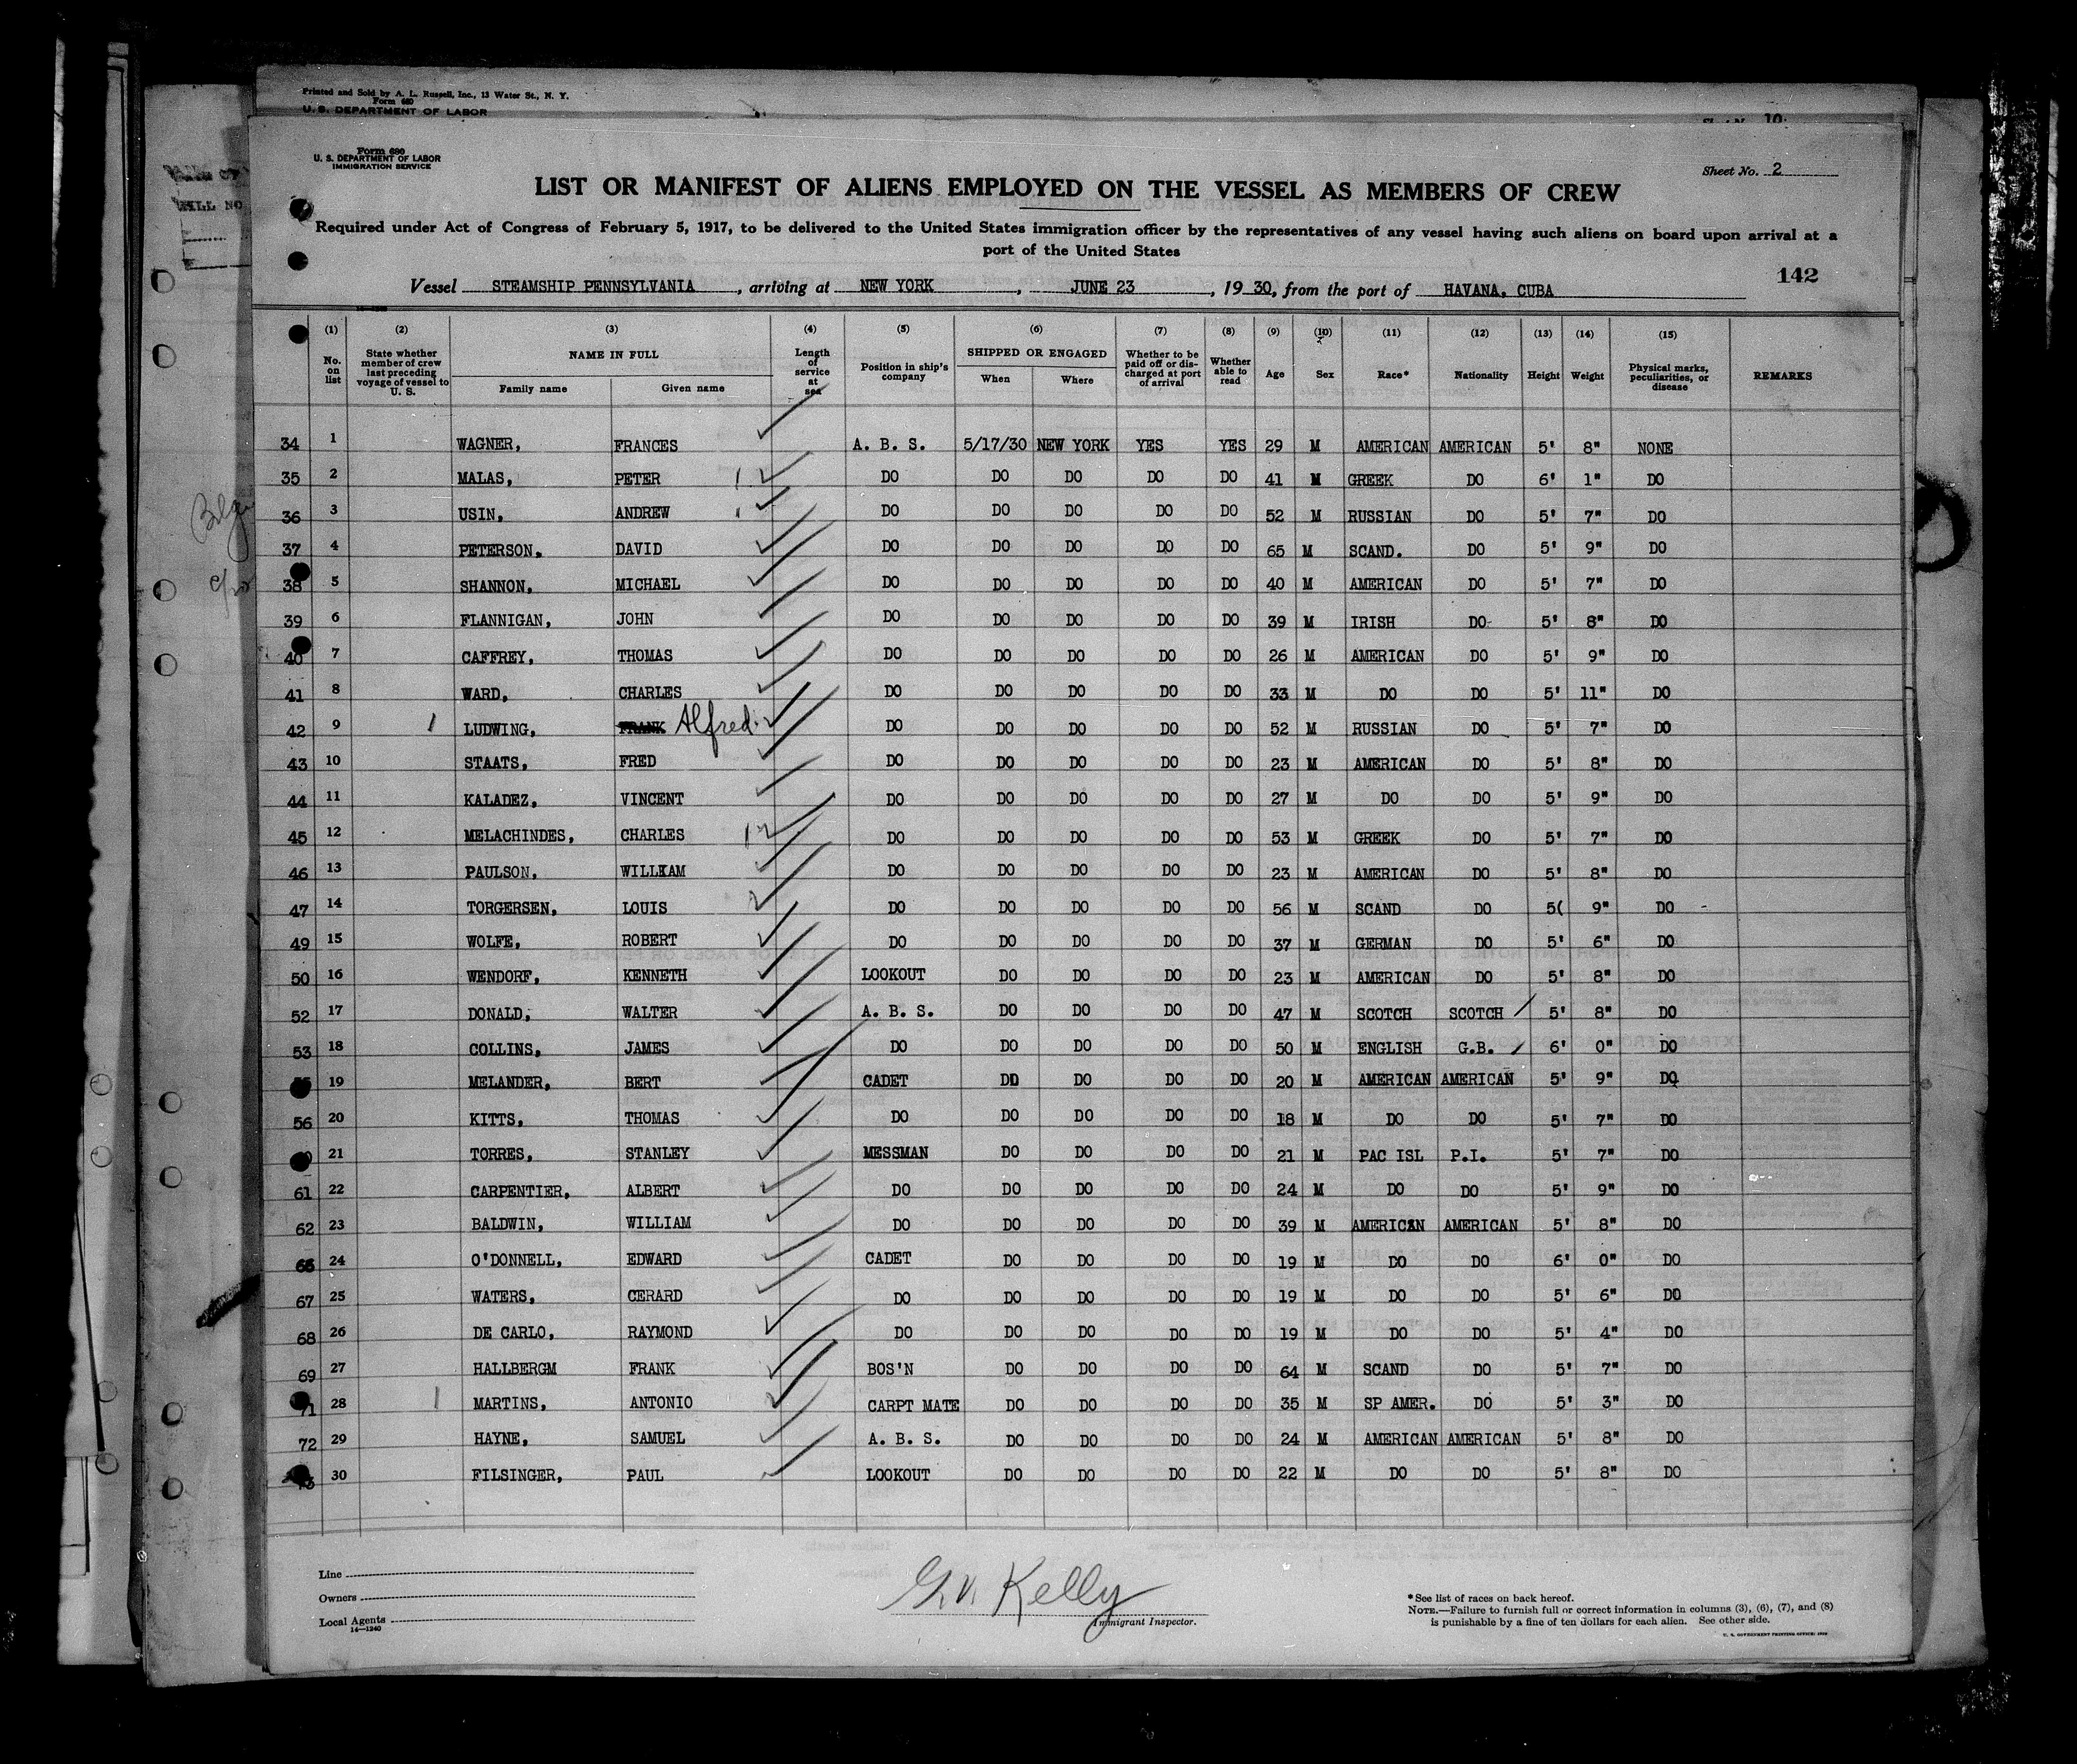 Printed and Sold by A. L. Russell, Inc., 13 Water St., N. Y.
Form 680
U. S. DEPARTMENT OF LABOR
10
Form 680
U. S. DEPARTMENT OF LABOR
IMMIGRATION SERVICE
Sheet No. 2
LIST OR MANIFEST OF ALIENS EMPLOYED ON THE VESSEL AS MEMBERS OF CREW
Required under Act of Congress of February 5, 1917, to be delivered to the United States immigration officer by the representatives of any vessel having such aliens on board upon arrival at a
port of the United States
142
Vessel STEAMSHIP PENNSYLVANIA, arriving at NEW YORK, JUNE 23, 1930, from the port of HAVANA, CUBA
(1) (2) (3) (4) (5) (6) (7) (8) (9) (10) (11) (12) (13) (14) (15)
No. on list | State whether member of crew last preceding voyage of vessel to U. S. | NAME IN FULL Family name Given name | Length of service at sea | Position in ship's company | SHIPPED OR ENGAGED When Where | Whether to be paid off or discharged at port of arrival | Whether able to read | Age | Sex | Race* | Nationality | Height | Weight | Physical marks, peculiarities, or disease | REMARKS
34 1 WAGNER, FRANCES A. B. S. 5/17/30 NEW YORK YES YES 29 M AMERICAN AMERICAN 5' 8" NONE
35 2 MALAS, PETER DO DO DO DO DO 41 M GREEK DO 6' 1" DO
36 3 USIN, ANDREW DO DO DO DO DO 52 M RUSSIAN DO 5' 7" DO
37 4 PETERSON, DAVID DO DO DO DO DO 65 M SCAND. DO 5' 9" DO
38 5 SHANNON, MICHAEL DO DO DO DO DO 40 M AMERICAN DO 5' 7" DO
39 6 FLANNIGAN, JOHN DO DO DO DO DO 39 M IRISH DO 5' 8" DO
40 7 CAFFREY, THOMAS DO DO DO DO DO 26 M AMERICAN DO 5' 9" DO
41 8 WARD, CHARLES DO DO DO DO DO 33 M DO DO 5' 11" DO
42 9 LUDWING, FRANK Alfred DO DO DO DO DO 52 M RUSSIAN DO 5' 7" DO
43 10 STAATS, FRED DO DO DO DO DO 23 M AMERICAN DO 5' 8" DO
44 11 KALADEZ, VINCENT DO DO DO DO DO 27 M DO DO 5' 9" DO
45 12 MELACHINDES, CHARLES DO DO DO DO DO 53 M GREEK DO 5' 7" DO
46 13 PAULSON, WILLKAM DO DO DO DO DO 23 M AMERICAN DO 5' 8" DO
47 14 TORGERSEN, LOUIS DO DO DO DO DO 56 M SCAND DO 5( 9" DO
49 15 WOLFE, ROBERT DO DO DO DO DO 37 M GERMAN DO 5' 6" DO
50 16 WENDORF, KENNETH LOOKOUT DO DO DO DO 23 M AMERICAN DO 5' 8" DO
52 17 DONALD, WALTER A. B. S. DO DO DO DO 47 M SCOTCH SCOTCH 5' 8" DO
53 18 COLLINS, JAMES DO DO DO DO DO 50 M ENGLISH G.B. 6' 0" DO
19 MELANDER, BERT CADET DO DO DO DO 20 M AMERICAN AMERICAN 5' 9" DO
56 20 KITTS, THOMAS DO DO DO DO DO 18 M DO DO 5' 7" DO
21 TORRES, STANLEY MESSMAN DO DO DO DO 21 M PAC ISL P.I. 5' 7" DO
61 22 CARPENTIER, ALBERT DO DO DO DO DO 24 M DO DO 5' 9" DO
62 23 BALDWIN, WILLIAM DO DO DO DO DO 39 M AMERICAN AMERICAN 5' 8" DO
66 24 O'DONNELL, EDWARD CADET DO DO DO DO 19 M DO DO 6' 0" DO
67 25 WATERS, CERARD DO DO DO DO DO 19 M DO DO 5' 6" DO
68 26 DE CARLO, RAYMOND DO DO DO DO DO 19 M DO DO 5' 4" DO
69 27 HALLBERGM FRANK BOS'N DO DO DO DO 64 M SCAND DO 5' 7" DO
71 28 MARTINS, ANTONIO CARPT MATE DO DO DO DO 35 M SP AMER. DO 5' 3" DO
72 29 HAYNE, SAMUEL A. B. S. DO DO DO DO 24 M AMERICAN AMERICAN 5' 8" DO
30 FILSINGER, PAUL LOOKOUT DO DO DO DO 22 M DO DO 5' 8" DO
Line
Owners
Local Agents
14—1240
Kelly
Immigrant Inspector.
*See list of races on back hereof.
NOTE.—Failure to furnish full or correct information in columns (3), (6), (7), and (8)
is punishable by a fine of ten dollars for each alien. See other side.